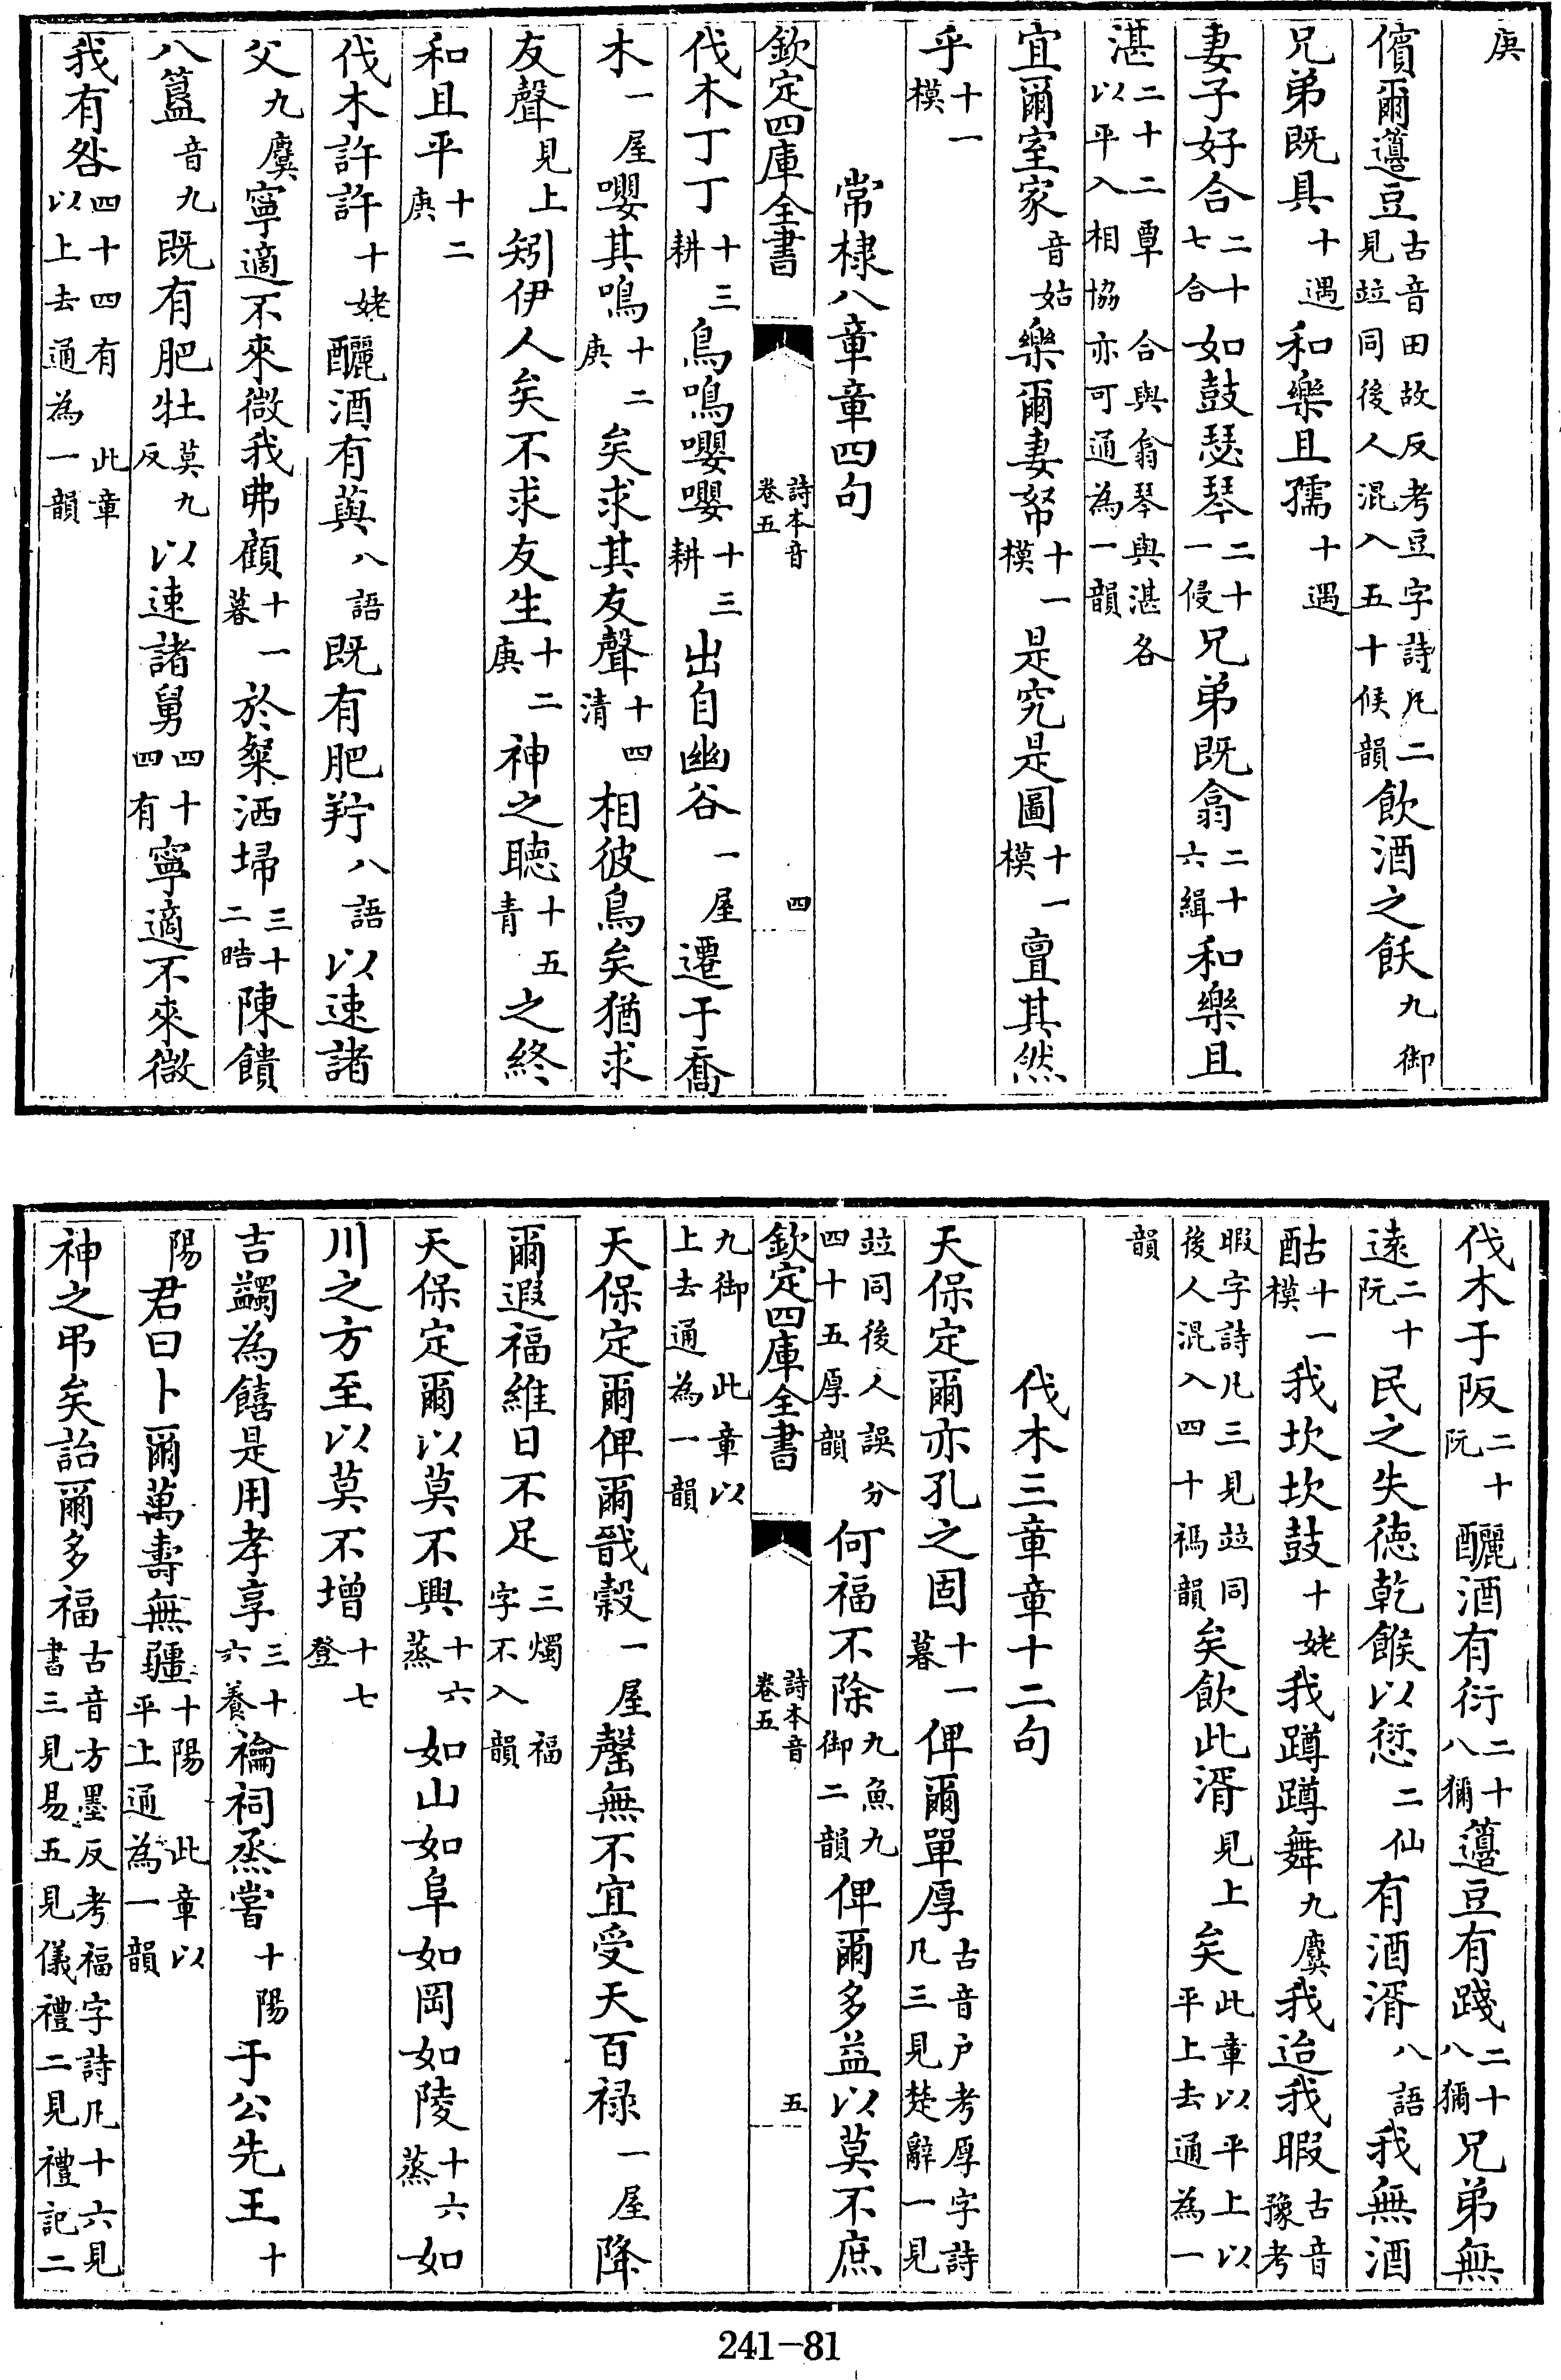 庚
儐爾籩豆古音田故反考豆字詩凡二見竝同後人混入五十候韻飲酒之飫九御
兄弟既具十遇和樂且孺十遇
妻子好合二十七合如鼓瑟琴二十一侵兄弟既翕二十六緝和樂且
湛二十二覃　合與翕琴與湛各以平入相協亦可通為一韻
宜爾室家音姑樂爾妻帑十一模是究是圖十一模亶其然
乎十一模
常棣八章章四句
欽定四庫全書　詩本音卷五　四
伐木丁丁十三耕鳥鳴嚶嚶十三耕出自幽谷一屋遷于喬
木一屋嚶其鳴十二庚矣求其友聲十四清相彼鳥矣猶求
友聲見上矧伊人矣不求友生十二庚神之聽十五青之終
和且平十二庚
伐木許許十姥釃酒有藇八語既有肥羜八語以速諸
父九麌寧適不來微我弗顧十一暮於粲洒埽三十二晧陳饋
八簋音九既有肥牡莫九反以速諸舅四十四有寧適不來微
我有咎四十四有　此章以上去通為一韻
伐木于阪二十阮釃酒有衍二十八獮籩豆有踐二十八獮兄弟無
遠二十阮民之失徳乾餱以愆二仙有酒湑八語我無酒
酤十一模我坎坎鼓十姥我蹲蹲舞九麌我迨我暇古音豫考
暇字詩凡三見竝同後人混入四十禡韻矣飲此湑見上矣此章以平上以平上去通為一
韻
伐木三章章十二句
天保定爾亦孔之固十一暮俾爾單厚古音户考厚字詩凡三見楚辭一見
竝同後人誤分四十五厚韻何福不除九魚九御二韻俾爾多益以莫不庶
欽定四庫全書　詩本音卷五　五
九御　此章以上去通為一韻
天保定爾俾爾戩穀一屋罄無不宜受天百禄一屋降
爾遐福維日不足三燭　福字不入韻
天保定爾以莫不興十六蒸如山如阜如岡如陵十六蒸如
川之方至以莫不增十七登
吉蠲為饎是用孝享三十六養禴祠烝嘗十陽于公先王十
陽君曰卜爾萬壽無疆十陽　此章以平上通為一韻
神之弔矣詒爾多福古音方墨反考福字詩凡十六見書三見易五見儀禮二見禮記二
241-81